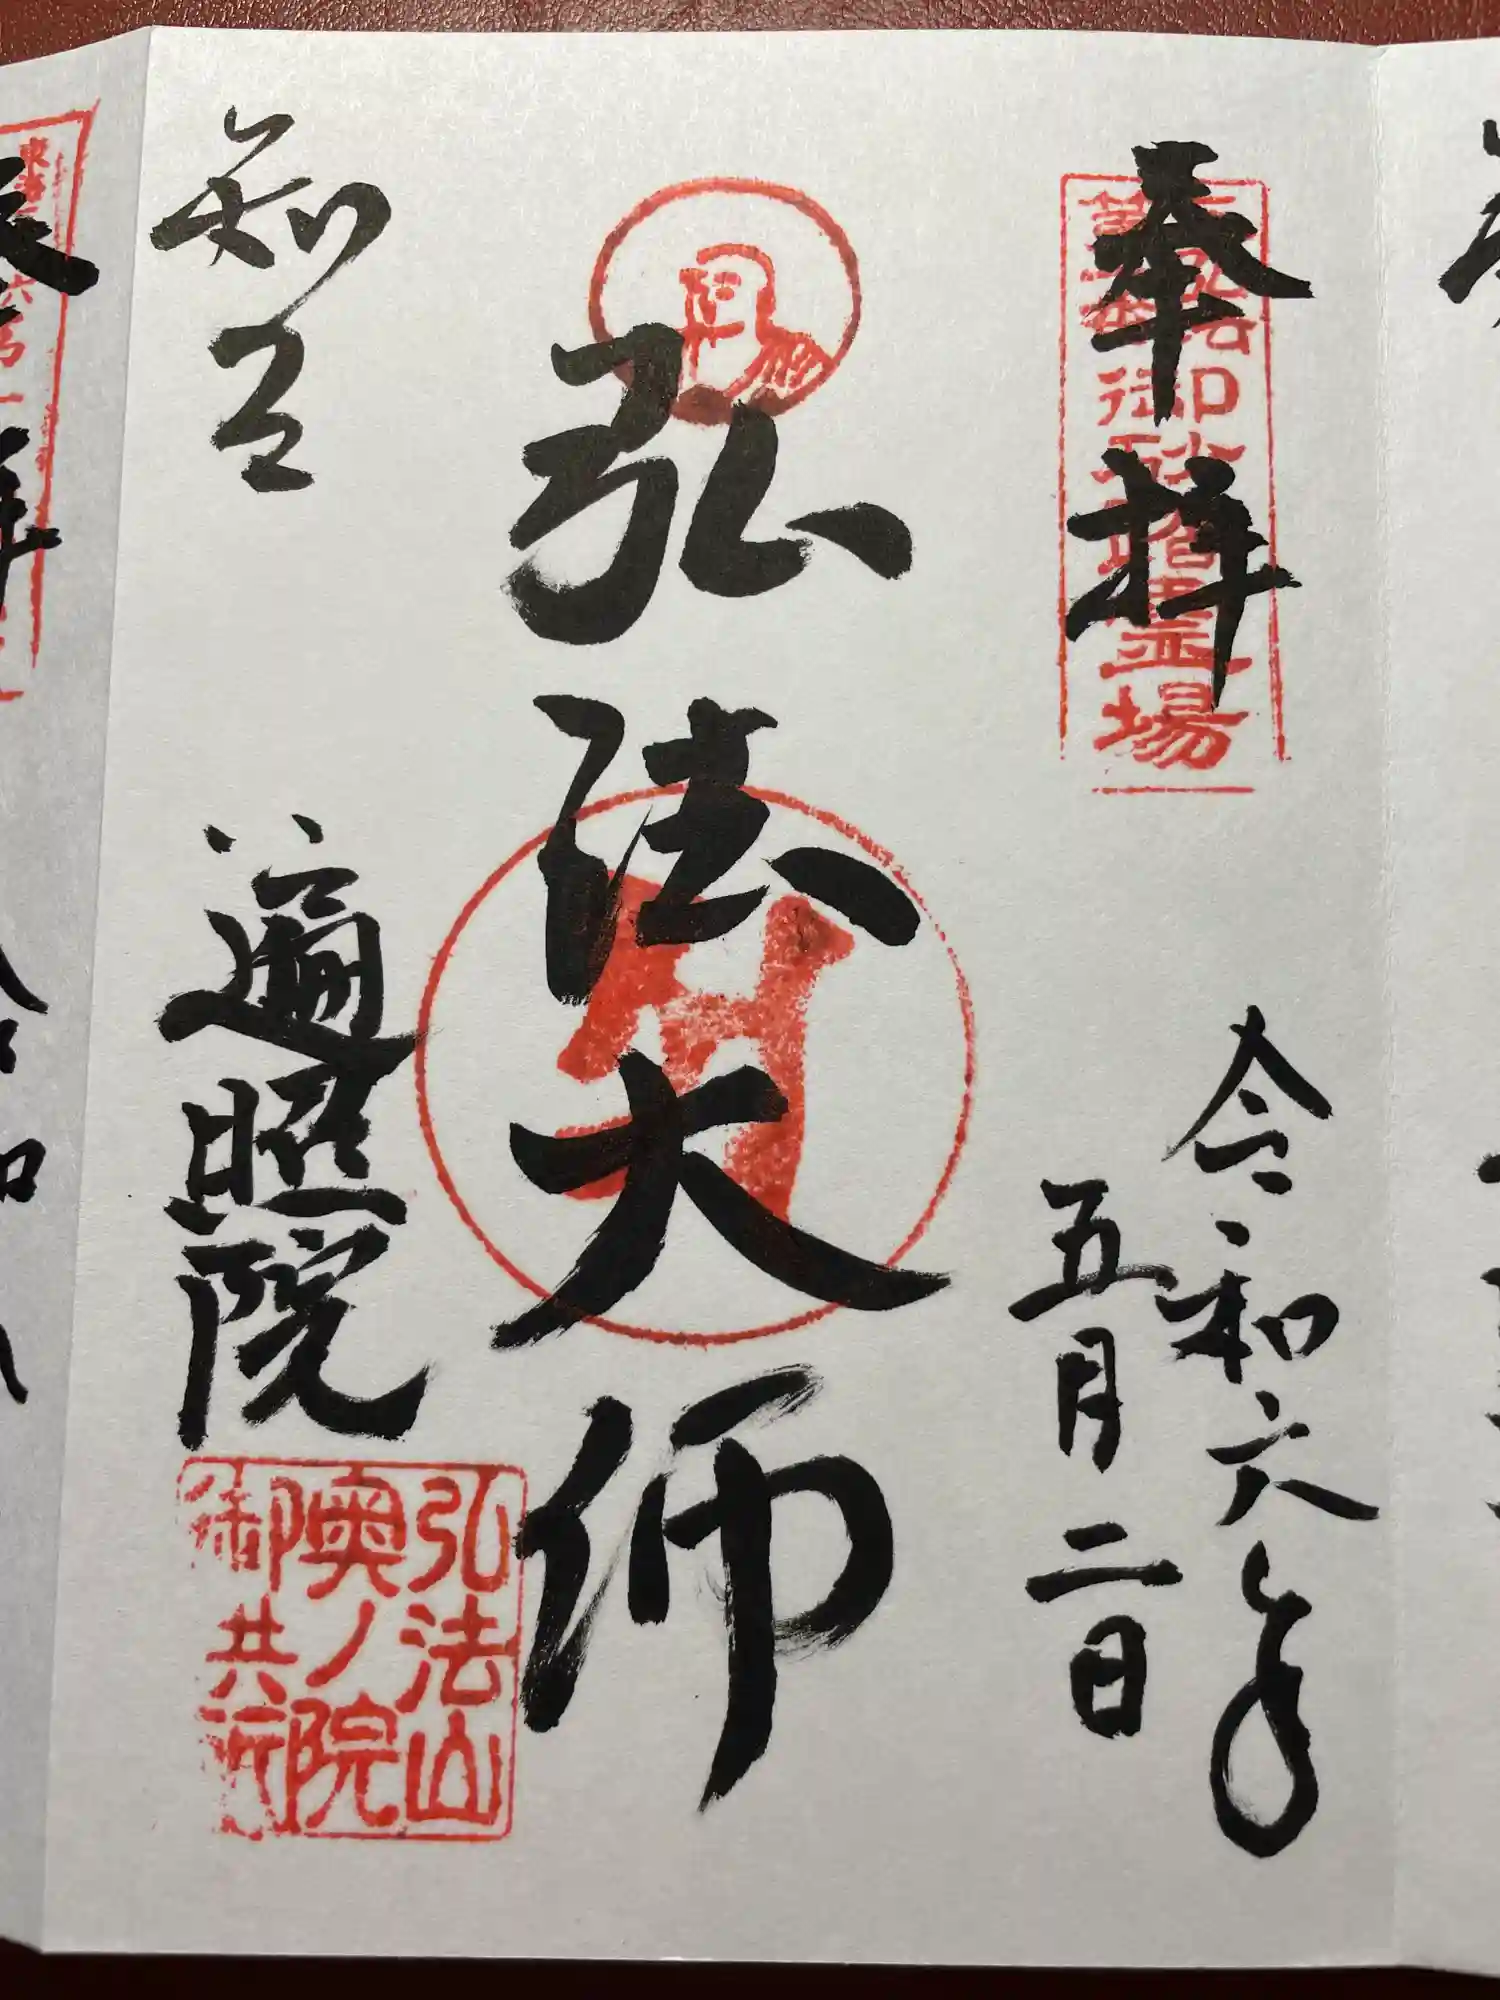 奉拝
令和六年
五月二日
弘法大師
知立
遍照院
弘法山
奥ノ院
御砂踏霊場